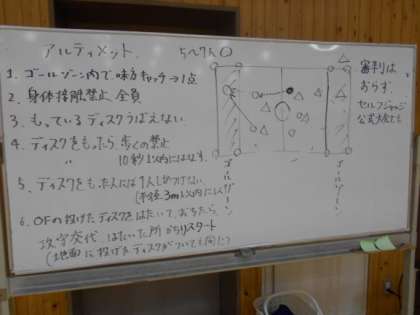 アルティメット 5〜7人
1. ゴールゾーン内で味方キャッチ→1点
2. 身体接触禁止 全員
3. もっているディスクうばえない
4. ディスクをもったら、歩くの禁止
〃 10秒以内にはなす。
5. ディスクをもった人には1人しかつけない
(半径3m以内に1人)
6. OFの投げたディスクをはたいて、おちたら、
攻守交代 はたいた所からリスタート
(地面に投げたディスクがついても同じ)
ゴールゾーン
ゴールゾーン
審判は
おらず、
セルフジャッジ
公式大会でも